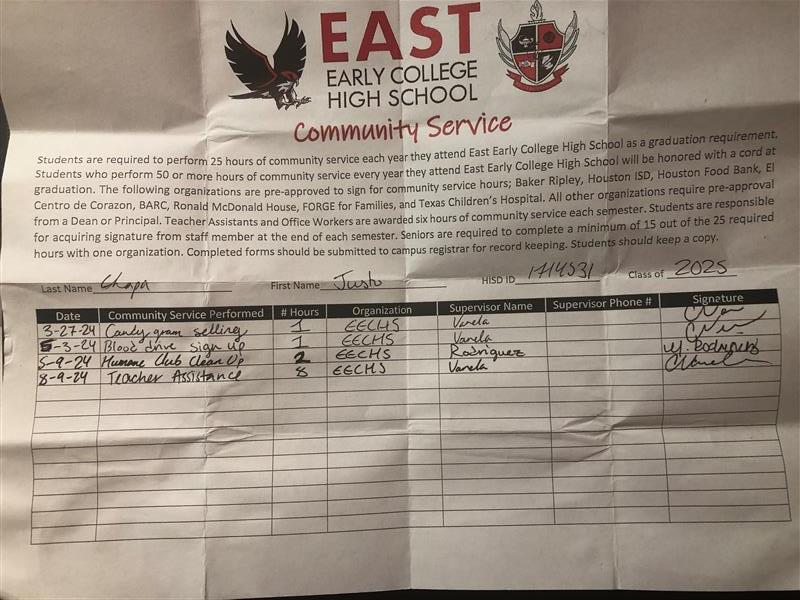 EAST
EARLY COLLEGE
HIGH SCHOOL
Community Service
Students are required to perform 25 hours of community service each year they attend East Early College High School as a graduation requirement.
Students who perform 50 or more hours of community service every year they attend East Early College High School will be honored with a cord at
graduation. The following organizations are pre-approved to sign for community service hours; Baker Ripley, Houston ISD, Houston Food Bank, El
Centro de Corazon, BARC, Ronald McDonald House, FORGE for Families, and Texas Children's Hospital. All other organizations require pre-approval
from a Dean or Principal. Teacher Assistants and Office Workers are awarded six hours of community service each semester. Students are responsible
for acquiring signature from staff member at the end of each semester. Seniors are required to complete a minimum of 15 out of the 25 required
hours with one organization. Completed forms should be submitted to campus registrar for record keeping. Students should keep a copy.
Last Name Chapa First Name Justo HISD ID 1714531 Class of 2025
Date Community Service Performed # Hours Organization Supervisor Name Supervisor Phone # Signature
3-27-24 Candy gram selling 1 EECHS Varela
5-3-24 Blood drive sign up 1 EECHS Varela
5-9-24 Humane Club Clean Up 2 EECHS Rodriguez M. Rodriguez
8-9-24 Teacher Assistance 8 EECHS Varela